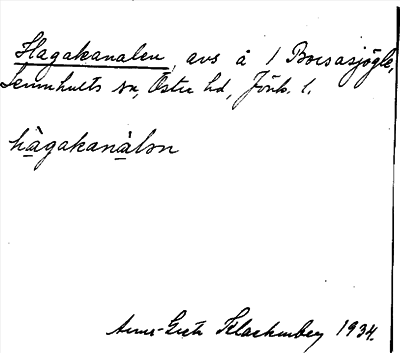 Hagakanalen, avs å / Boesasjögle,
Lemnhults sn, Östra hd, Jönk. l.
hàgakanàlən
Anna-Greta Klackenberg 1934.